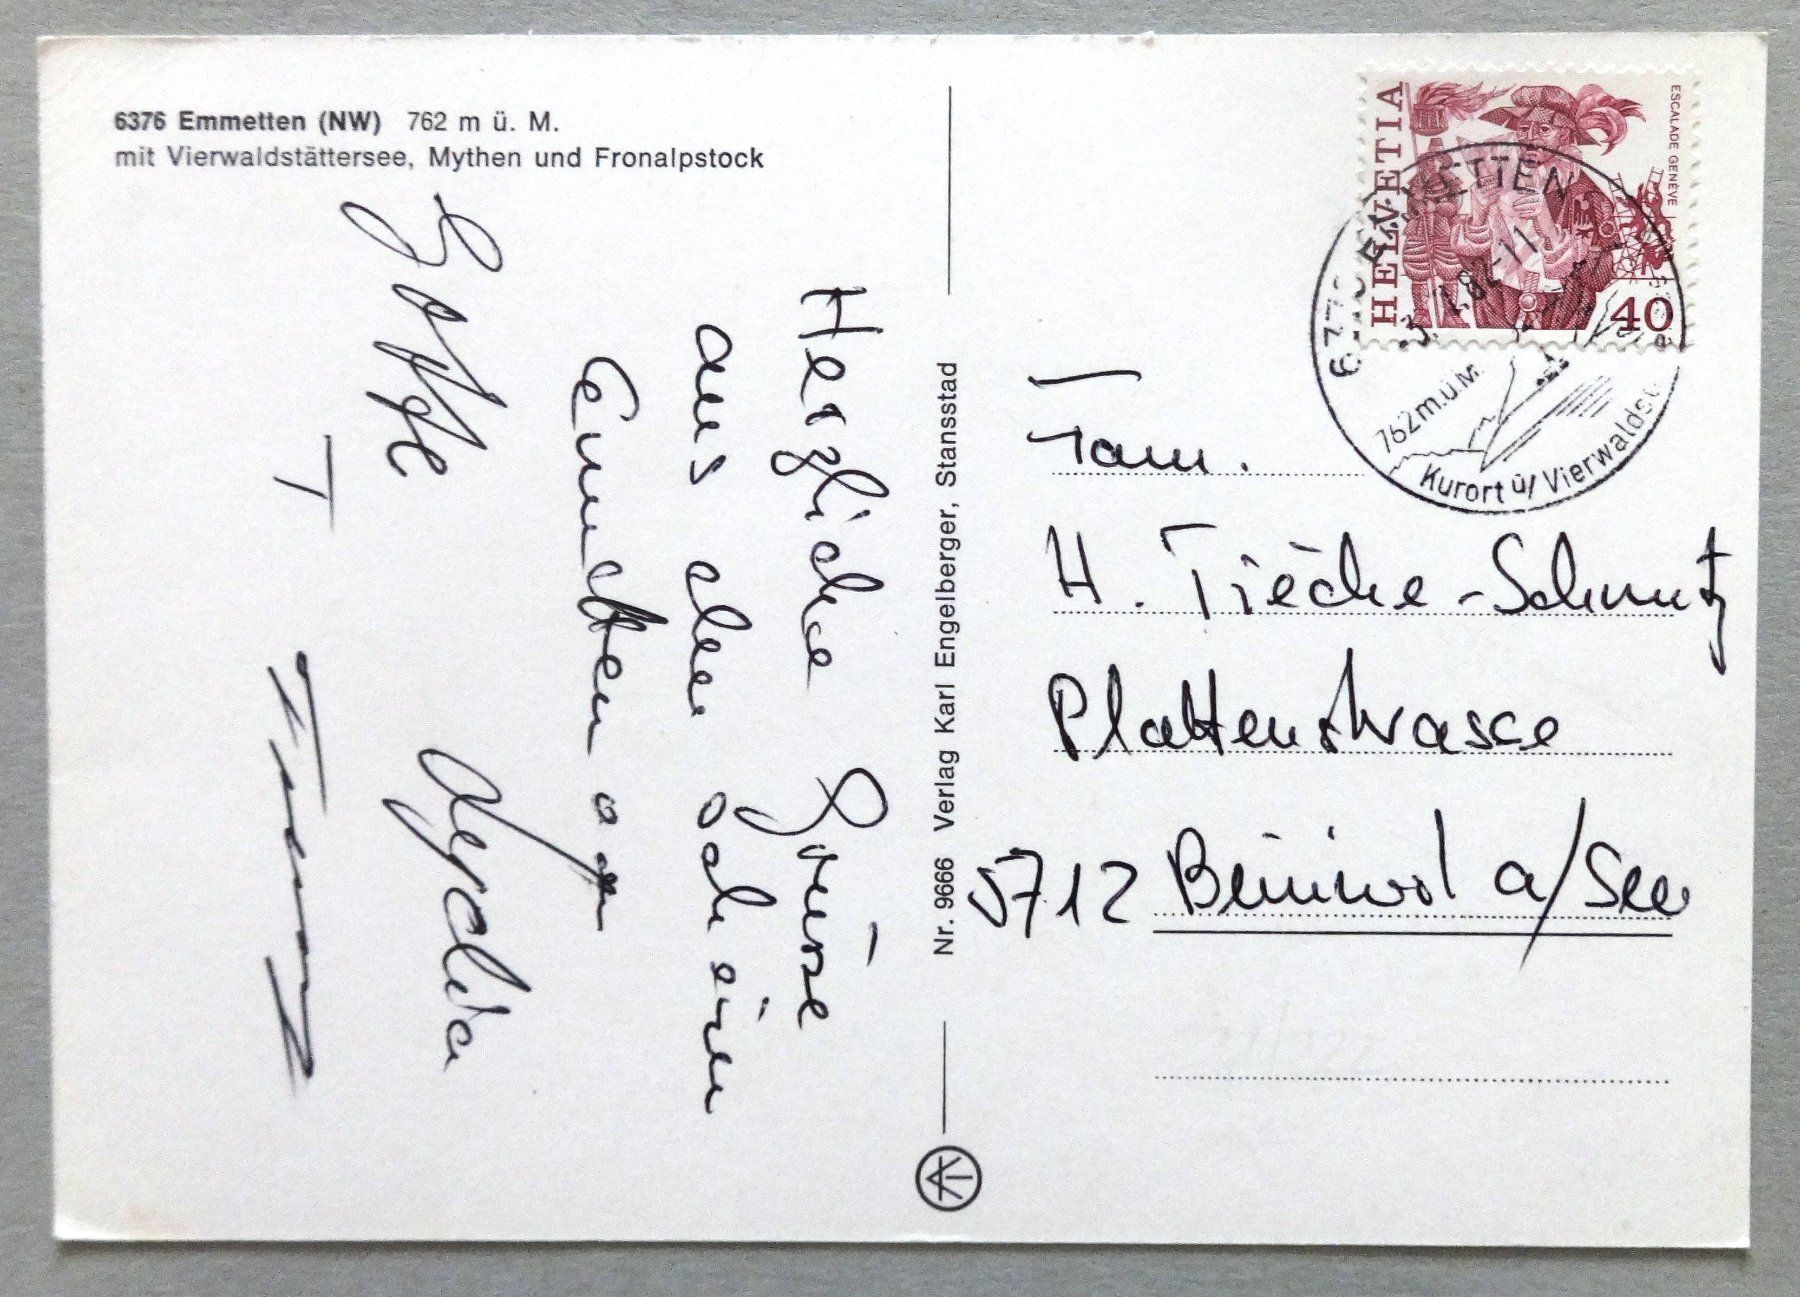 6376 Emmetten (NW) 762 m ü. M.
mit Vierwaldstättersee, Mythen und Fronalpstock
Herzliche Grüsse
aus dem schönen
Emmetten
Nr. 9666 Verlag Karl Engelberger, Stansstad
HELVETIA
ESCALADE GENÈVE
40
EMMETTEN
1.82-11
762 m.ü.M.
Kurort ü/ Vierwaldst
Fam.
H. Tièche-Schmutz
Plattenstrasse
5712 Beinwil a/See